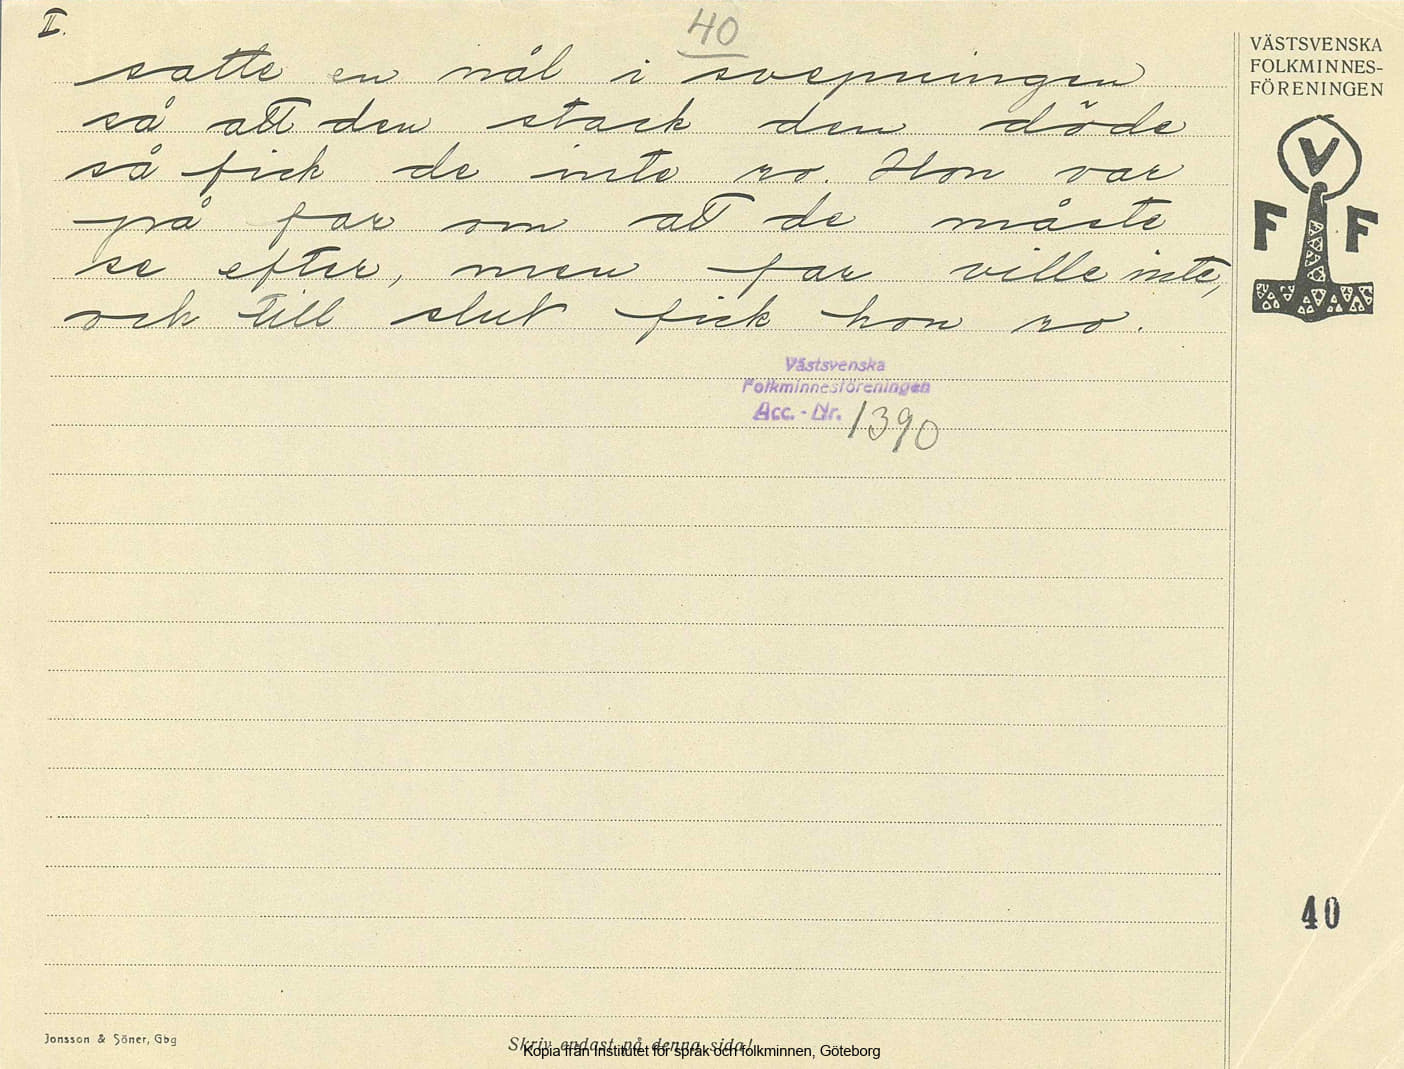 II.
40
satte en nål i svepningen
så att den stack den döde
så fick de inte ro. Hon var
på far om att de måste
se efter, men far ville inte,
och till slut fick hon ro.
Västsvenska
Folkminnesföreningen
Acc. - Nr. 1390
VÄSTSVENSKA
FOLKMINNES-
FÖRENINGEN
V
F F
40
Jonsson & Söner, Gbg
Skriv endast på denna sida!
Kopia från Institutet för språk och folkminnen, Göteborg